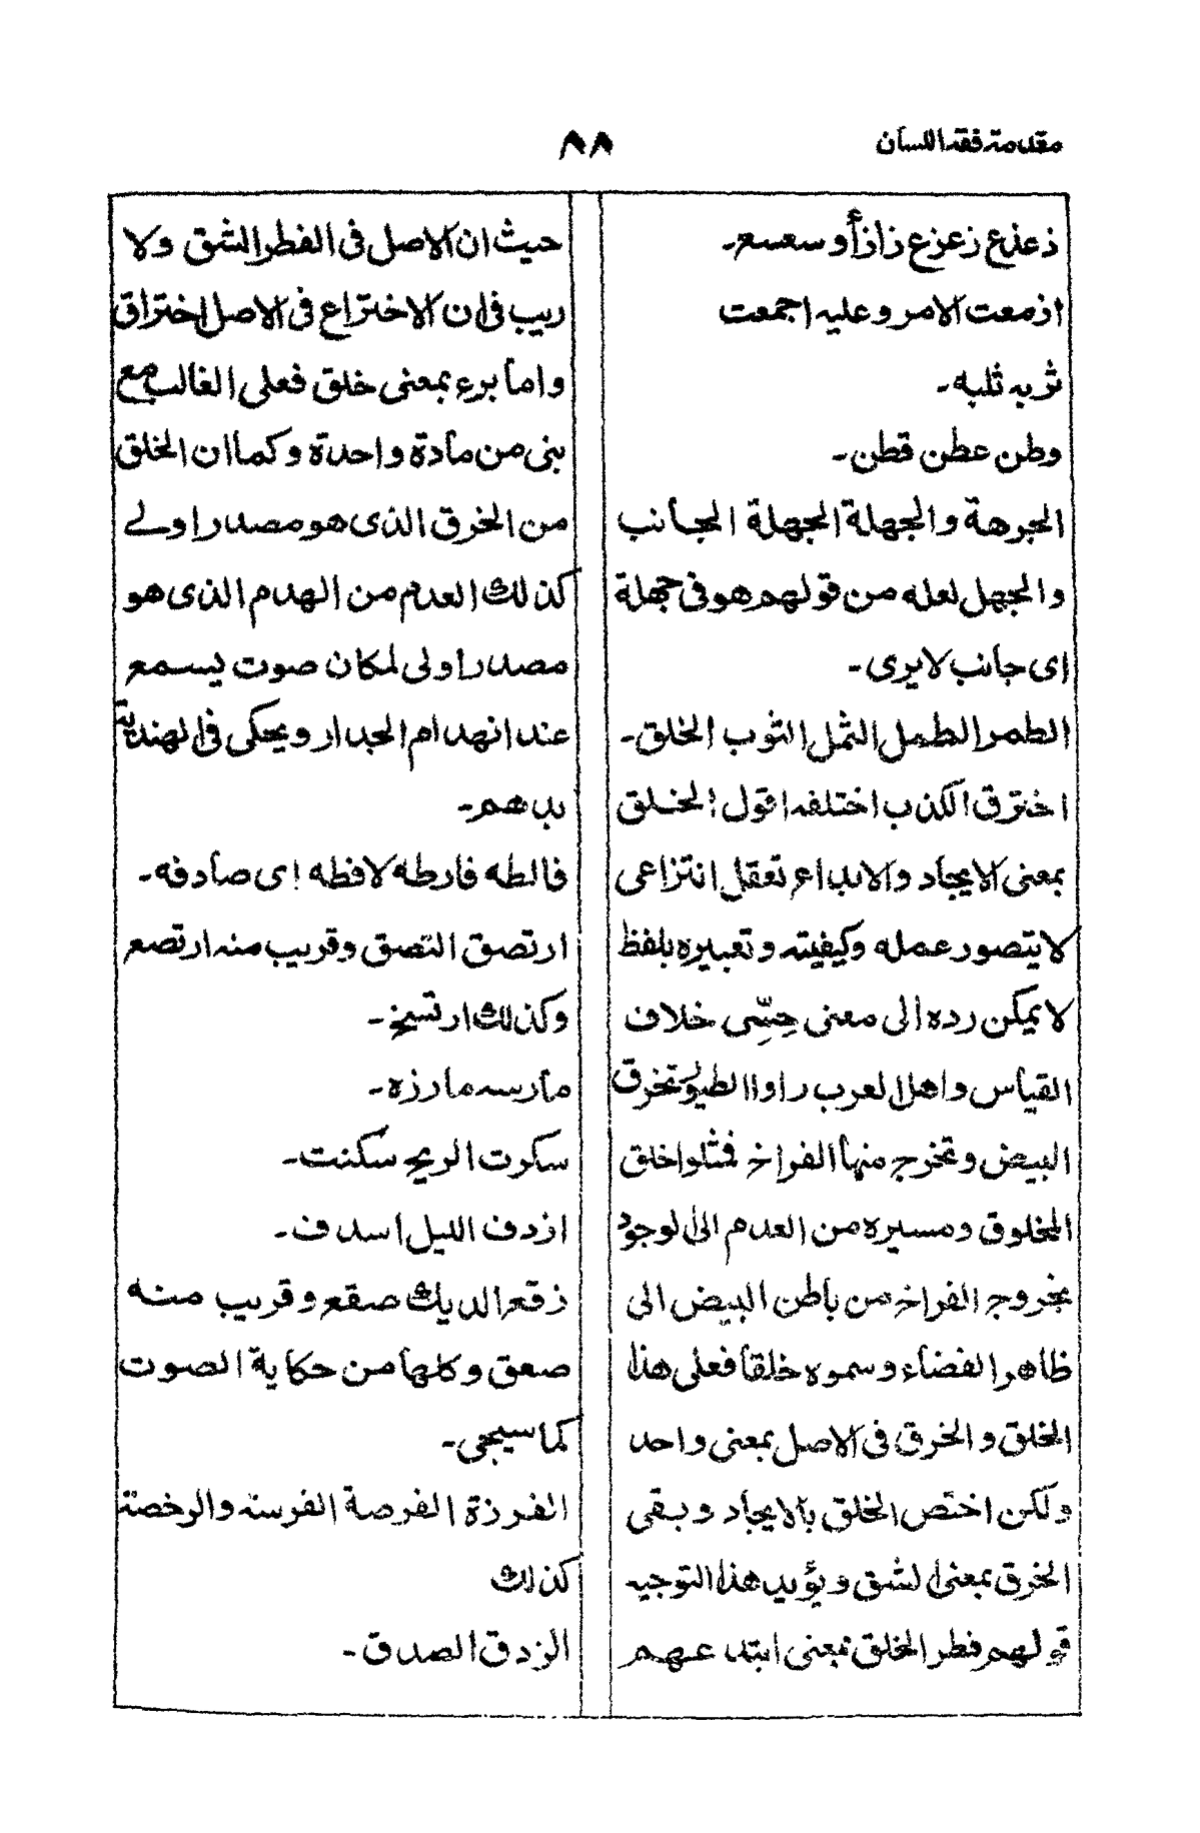 مقدمة فقه اللسان
٨٨
ذعذع زعزع زازأ و سعسع۔
ازمعت الامر و عليه اجمعت
ثربه ثلبه۔
وطن عطن قطن۔
الجرهة والجهلة الجهلة الجانب
والجهل لعله من قولهم هو فى جهلة
اى جانب لا يرى۔
الطمر الطمل الثمل الثوب الخلق۔
اخترق الكذب اختلقه اقول الخلق
بمعنى الايجاد والابداع تعقل انتزاعى
لا يتصور عمله وكيفيته و تعبيره بلفظ
لا يمكن رده الى معنى حِسِّى خلاف
القياس واهل العرب راوا الطيور تخرق
البيض و تخرج منها الفراخ فمثلوا خلق
المخلوق ومسيره من العدم الى الوجود
بخروج الفراخ من باطن البيض الى
ظاهر الفضاء و سموه خلقا فعلى هذا
الخلق و الخرق فى الاصل بمعنى واحد
ولكن اختص الخلق بالايجاد و بقى
الخرق بمعنى الشق و يؤيد هذا التوجيه
قولهم فطر الخلق بمعنى ابتدا عهم
حيث ان الاصل فى الفطر الشق ولا
ريب فى ان الاختراع فى الاصل اختراق
واما برء بمعنى خلق فعلى الغالب مع
بنى من مادة واحدة وكما ان الخلق
من الخرق الذى هو مصدر اولے
كذلك العدم من الهدم الذى هو
مصدر اولى لمكان صوت يسمع
عند انهدام الجدار ويحكى فى الهندية
بدهم۔
فالطه فارطه لافظه اى صادفه۔
ارتصق التصق وقريب منه ارتصع
وكذلك ارتسخ۔
مارسه مارزه۔
سكرت الريح سكنت۔
ازدف الليل اسدف۔
زقع الديك صقع وقريب منه
صعق وكلها من حكاية الصوت
كما سيجى۔
الفرزة الفرصة الفرسة والرخصة
كذلك
الزدق الصدق۔